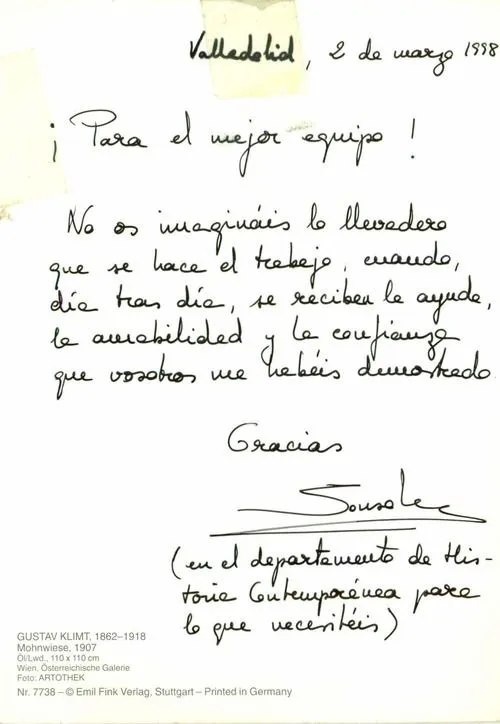 Valladolid, 2 de marzo 1998
¡Para el mejor equipo!
No os imagináis lo llevadero
que se hace el trabajo, cuando,
día tras día, se reciben la ayuda,
la amabilidad y la confianza
que vosotros me habéis demostrado
Gracias
(en el departamento de His-
toria Contemporánea para
lo que necesitéis)
GUSTAV KLIMT, 1862–1918
Mohnwiese, 1907
Öl/Lwd., 110 x 110 cm
Wien, Österreichische Galerie
Foto: ARTOTHEK
Nr. 7738 – © Emil Fink Verlag, Stuttgart – Printed in Germany